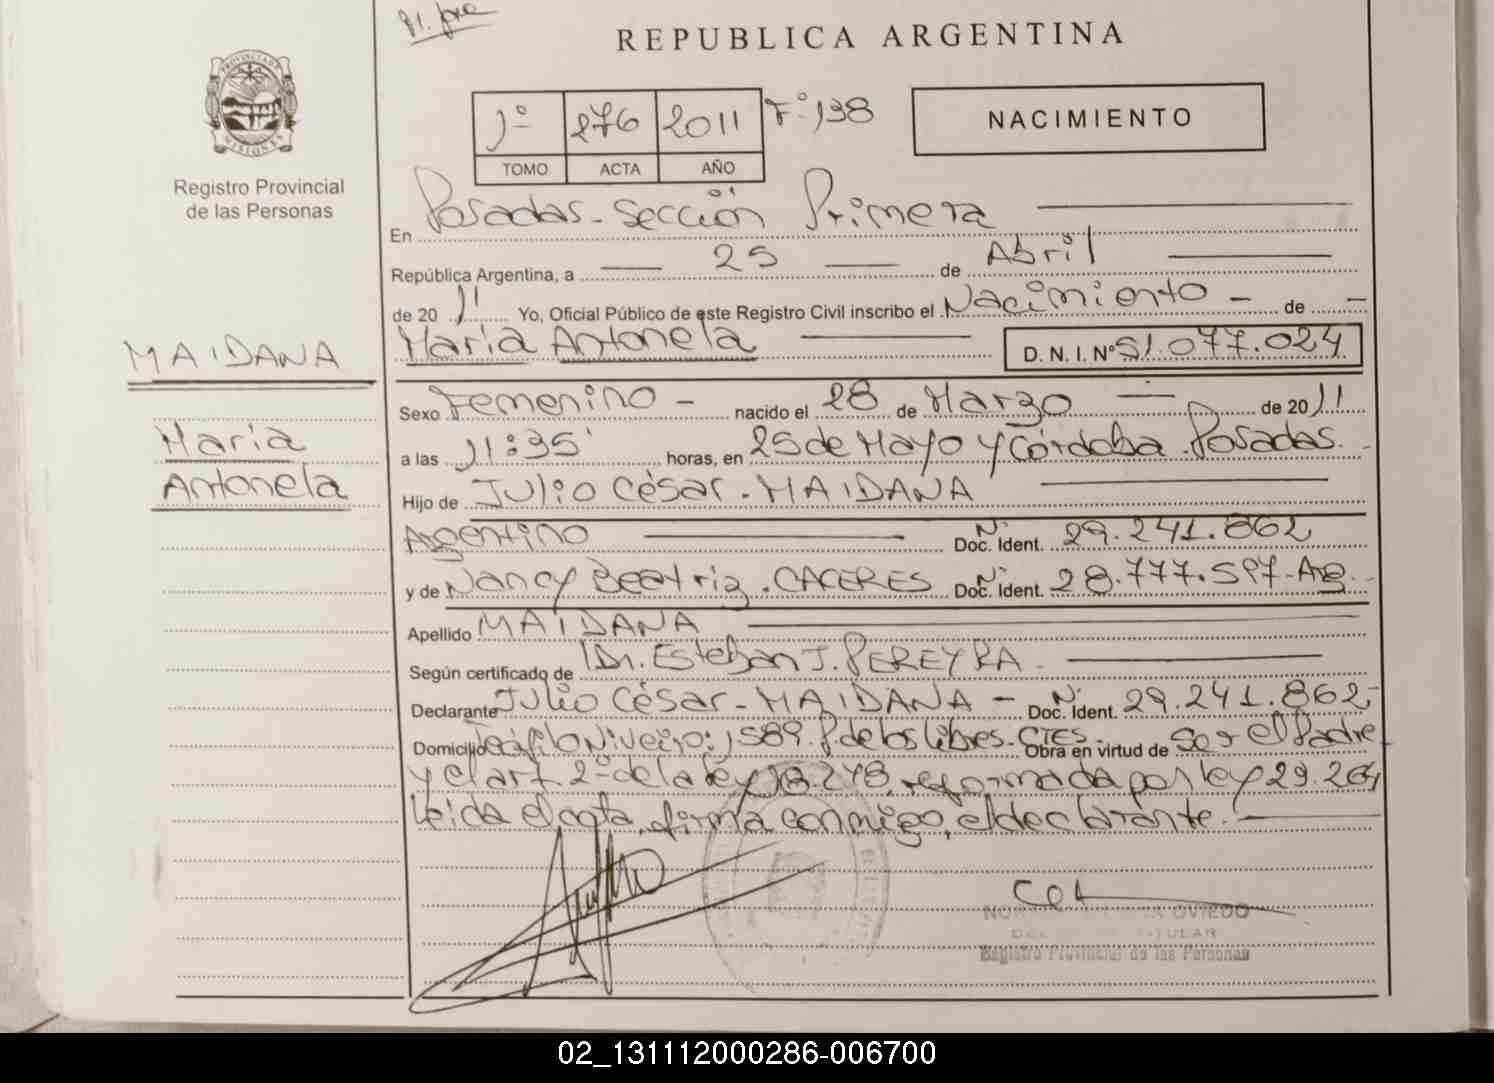 REPUBLICA ARGENTINA
PROVINCIA DE
MISIONES
Registro Provincial
de las Personas
1º 276 2011 Fº 138
TOMO ACTA AÑO
NACIMIENTO
En Posadas - Sección Primera
República Argentina, a 25 de Abril
de 20 11 Yo, Oficial Público de este Registro Civil inscribo el Nacimiento - de -
MAIDANA
María Antonela D. N. I. Nº 51.077.024
Sexo Femenino - nacido el 28 de Marzo de 20 11
María
Antonela
a las 11:35' horas, en 25 de Mayo y Córdoba. Posadas.
Hijo de Julio César. MAIDANA
Argentino Nº Doc. Ident. 29.241.862
y de Nancy Beatriz. CACERES Nº Doc. Ident. 28.777.597-Arg.
Apellido MAIDANA
Según certificado de Dr. Esteban J. PEREYRA.
Declarante Julio César - MAIDANA - Nº Doc. Ident. 29.241.862-
Domicilio Teófilo 1589. P. de los Libres. CTES. Obra en virtud de Ser el Padre
y el art. 2º de la ley 18.248, reformada por ley 29.264
leida el acta, firma conmigo, el declarante.
OVIEDO
TITULAR
Registro Provincial de las Personas
02_131112000286-006700